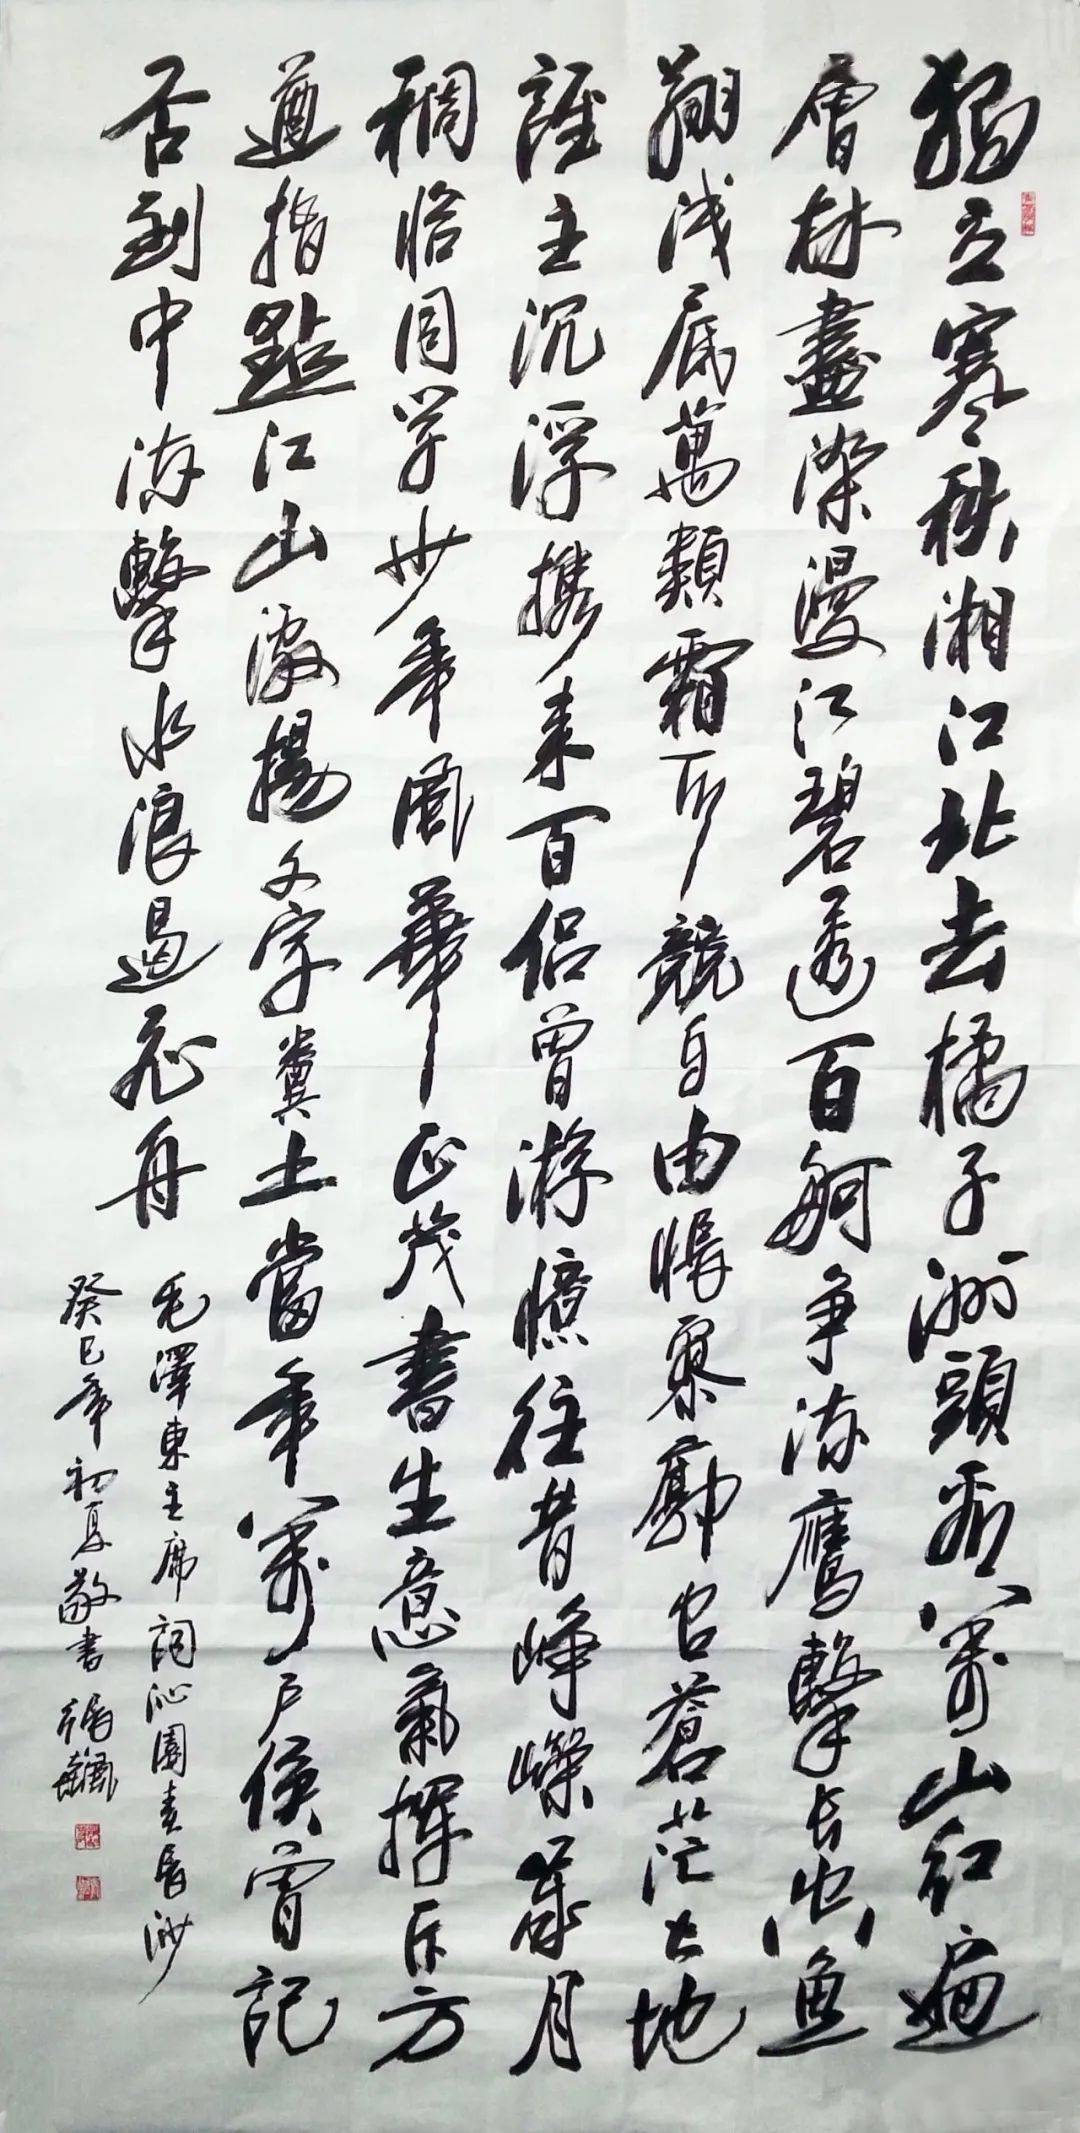 獨立寒秋湘江北去橘子洲頭看萬山紅遍
層林盡染漫江碧透百舸爭流鷹擊長空魚
翔淺底萬類霜天競自由悵寥廓問蒼茫大地
誰主沉浮攜來百侶曾游憶往昔崢嶸歲月
稠恰同學少年風華正茂書生意氣揮斥方
遒指點江山激揚文字糞土當年萬戶侯曾記
否到中流擊水浪遏飛舟
毛澤東主席詞沁園春長沙
癸巳年初夏敬書 張飆